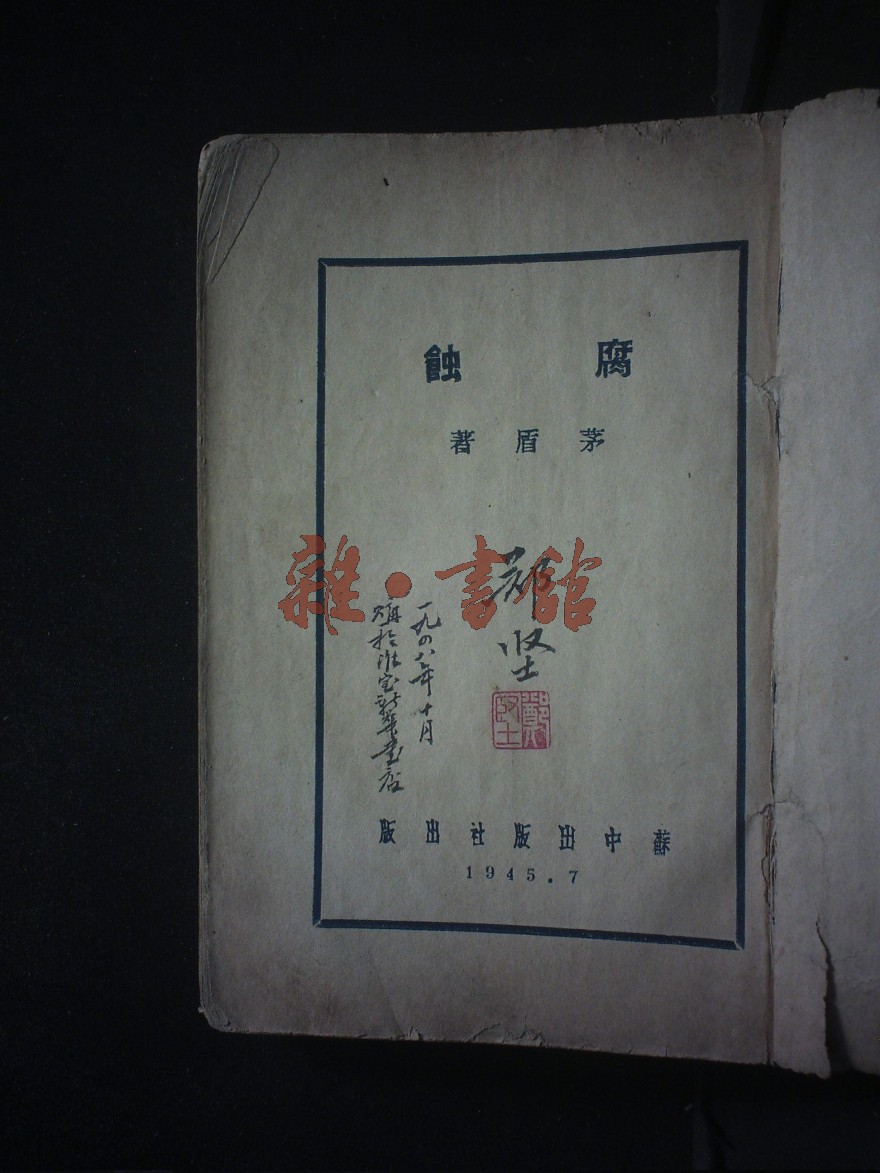 腐蝕
茅盾著
雜·書館
郑坚
一九四八年十月
於淮宝新華書店
蘇中出版社出版
1945.7